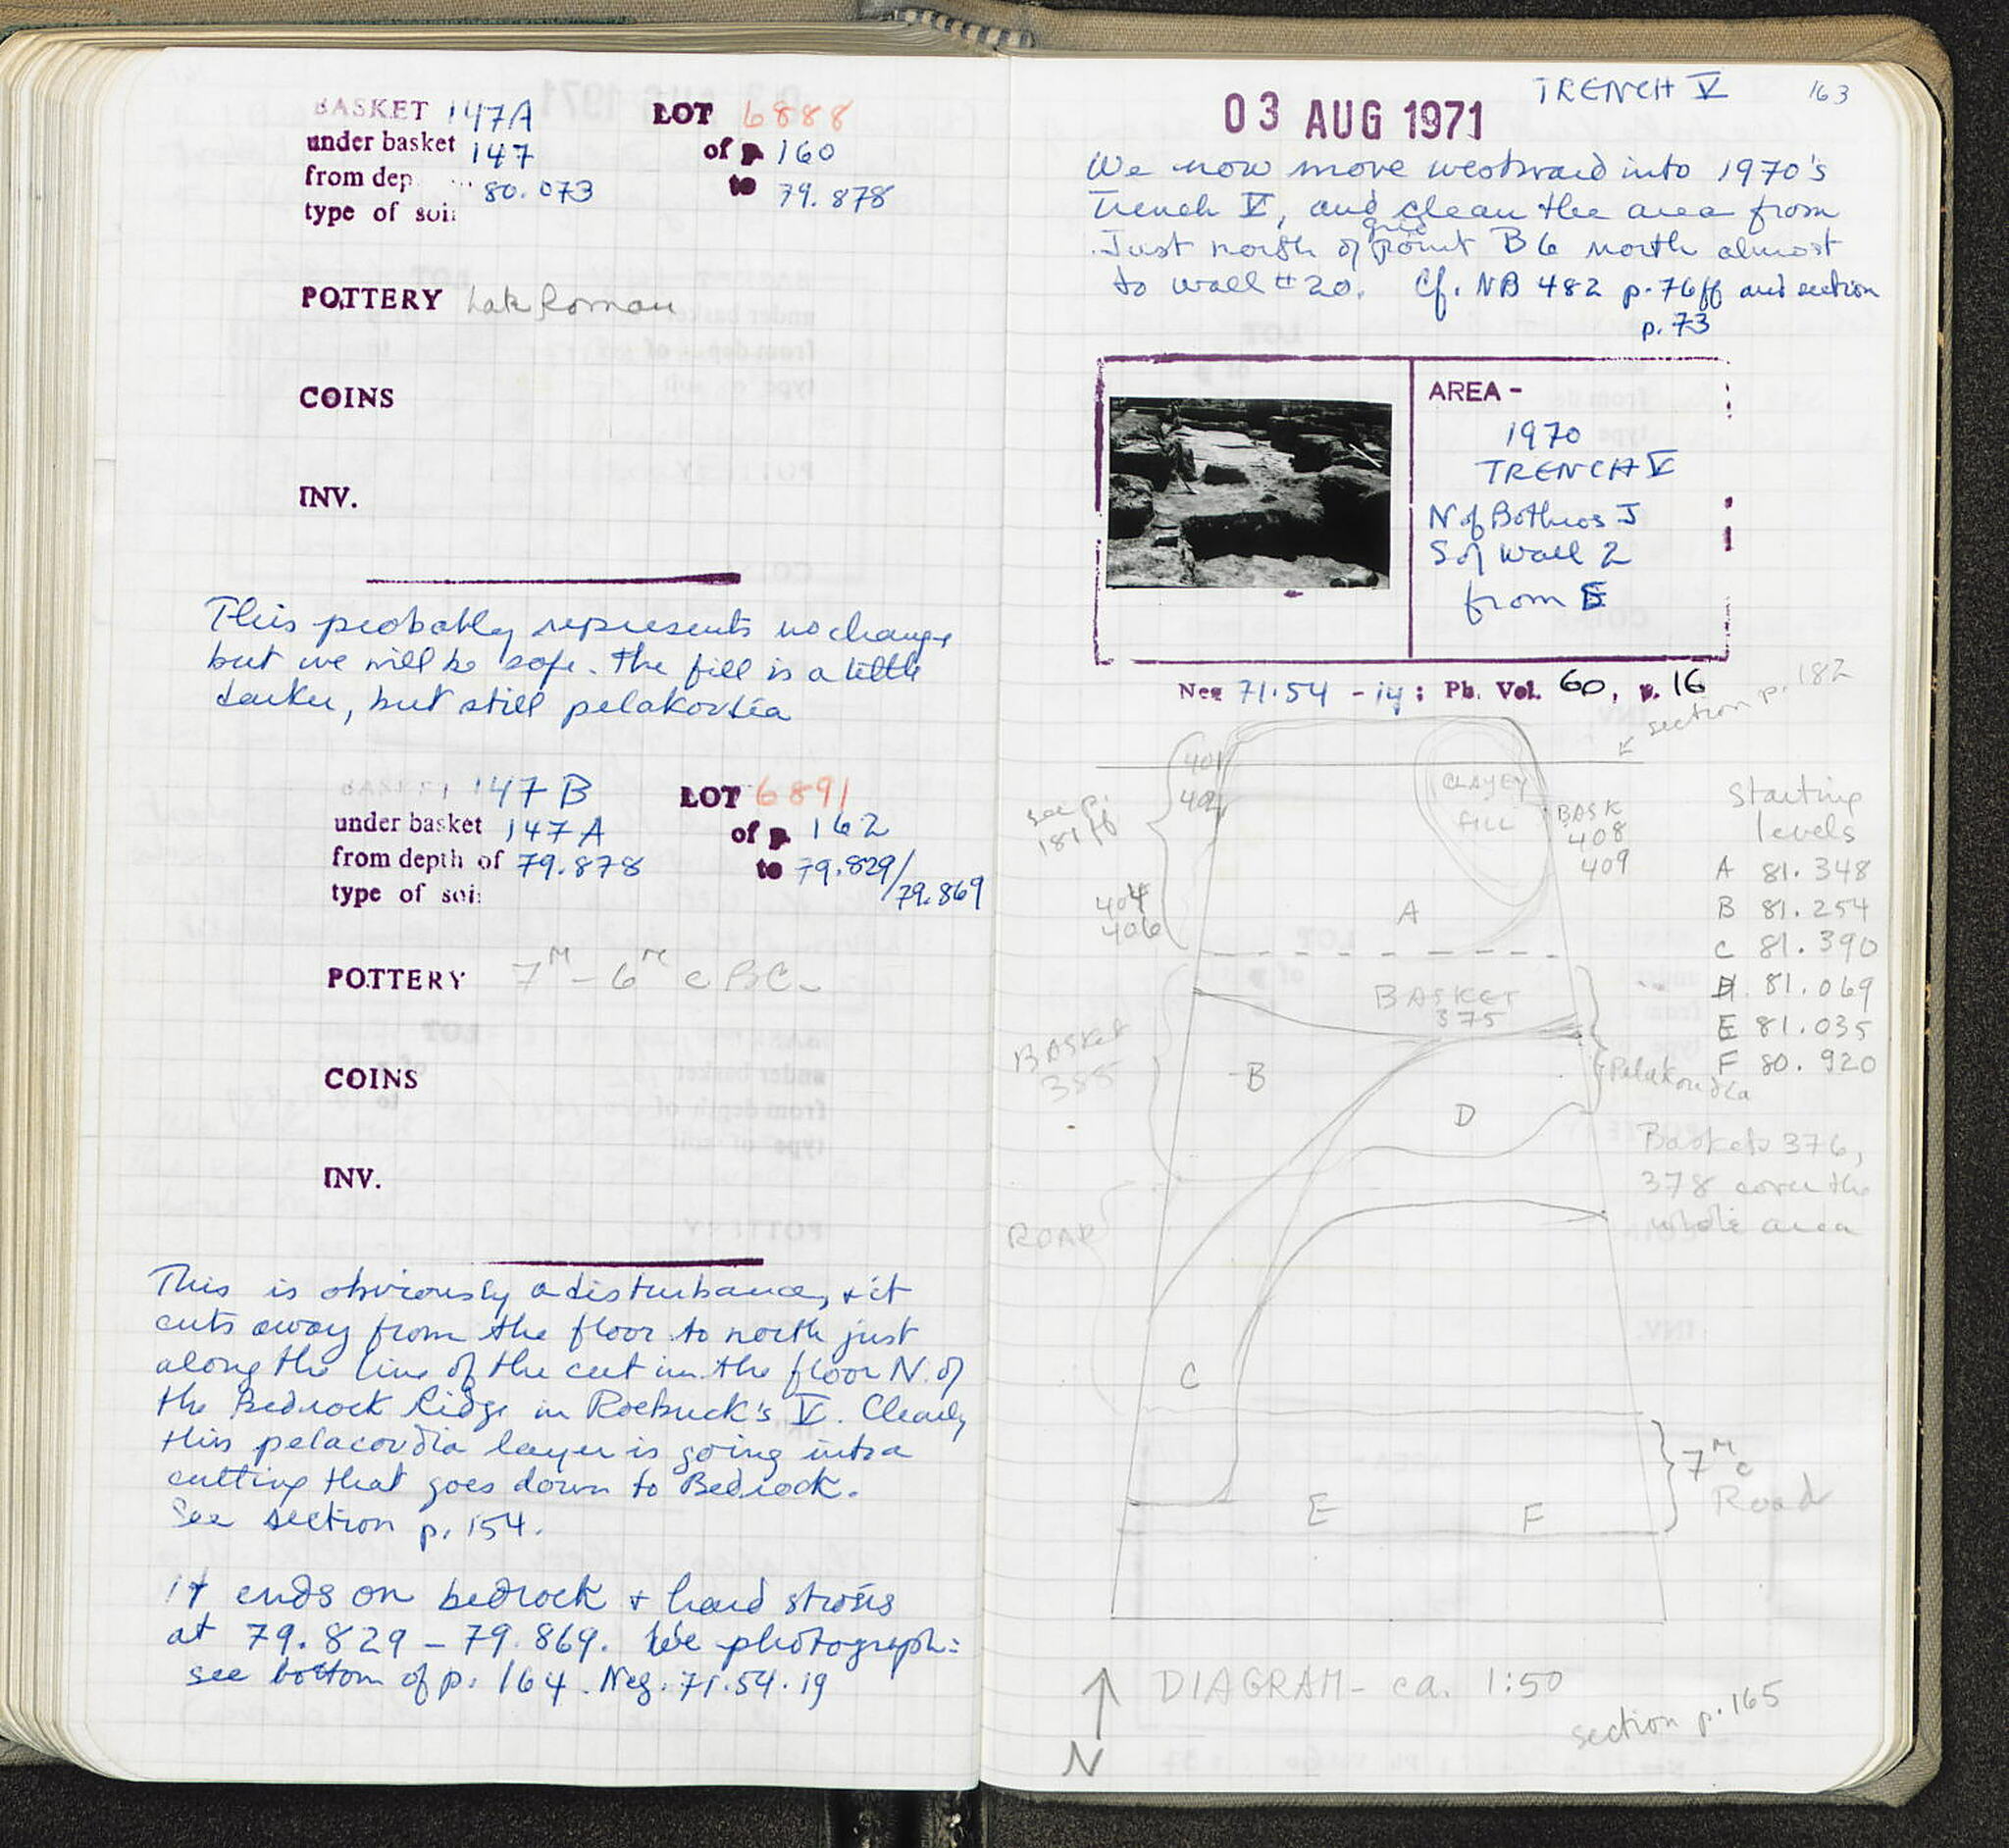 BASKET 147A LOT 6888
under basket 147 of p. 160
from dep 80.073 to 79.878
type of soil
POTTERY Late Roman
COINS
INV.
This probably represents no change,
but we will be safe. The fill is a little
darker, but still pelakovdia
BASKET 147B LOT 6891
under basket 147A of p. 162
from depth of 79.878 to 79.829/
79.869
type of soil
POTTERY 7M - 6M c BC.
COINS
INV.
This is obviously a disturbance, & it
cuts away from the floor to north just
along the line of the cut in the floor N. of
the Bedrock Ridge in Roebuck's V. Clearly
this pelacovdia layer is going into a
cutting that goes down to Bedrock.
See section p. 154.
it ends on bedrock & hard strosis
at 79.829 - 79.869. We photograph:
see bottom of p. 164. Neg. 71.54.19
TRENCH V 163
03 AUG 1971
We now move westward into 1970's
Trench V, and clean the area from
Just north of grid point B6 north almost
to wall #20. Cf. NB 482 p. 76ff and section
p. 73
AREA -
1970
TRENCH V
N of Bothros J
S of Wall 2
from E
Neg 71.54 - 14; Ph. Vol. 60, p. 16
section p. 182
401
402
see p.
181ff
404
406
CLAYEY
FILL
BASK
408
409
A
Starting
levels
A 81.348
B 81.254
C 81.390
D 81.069
E 81.035
F 80.920
BASKET
375
BASKET
385
B
D
Pelakovdia
Baskets 376,
378 cover the
whole area
ROAD
C
7M c
Road
E F
N
DIAGRAM - ca. 1:50
section p. 165